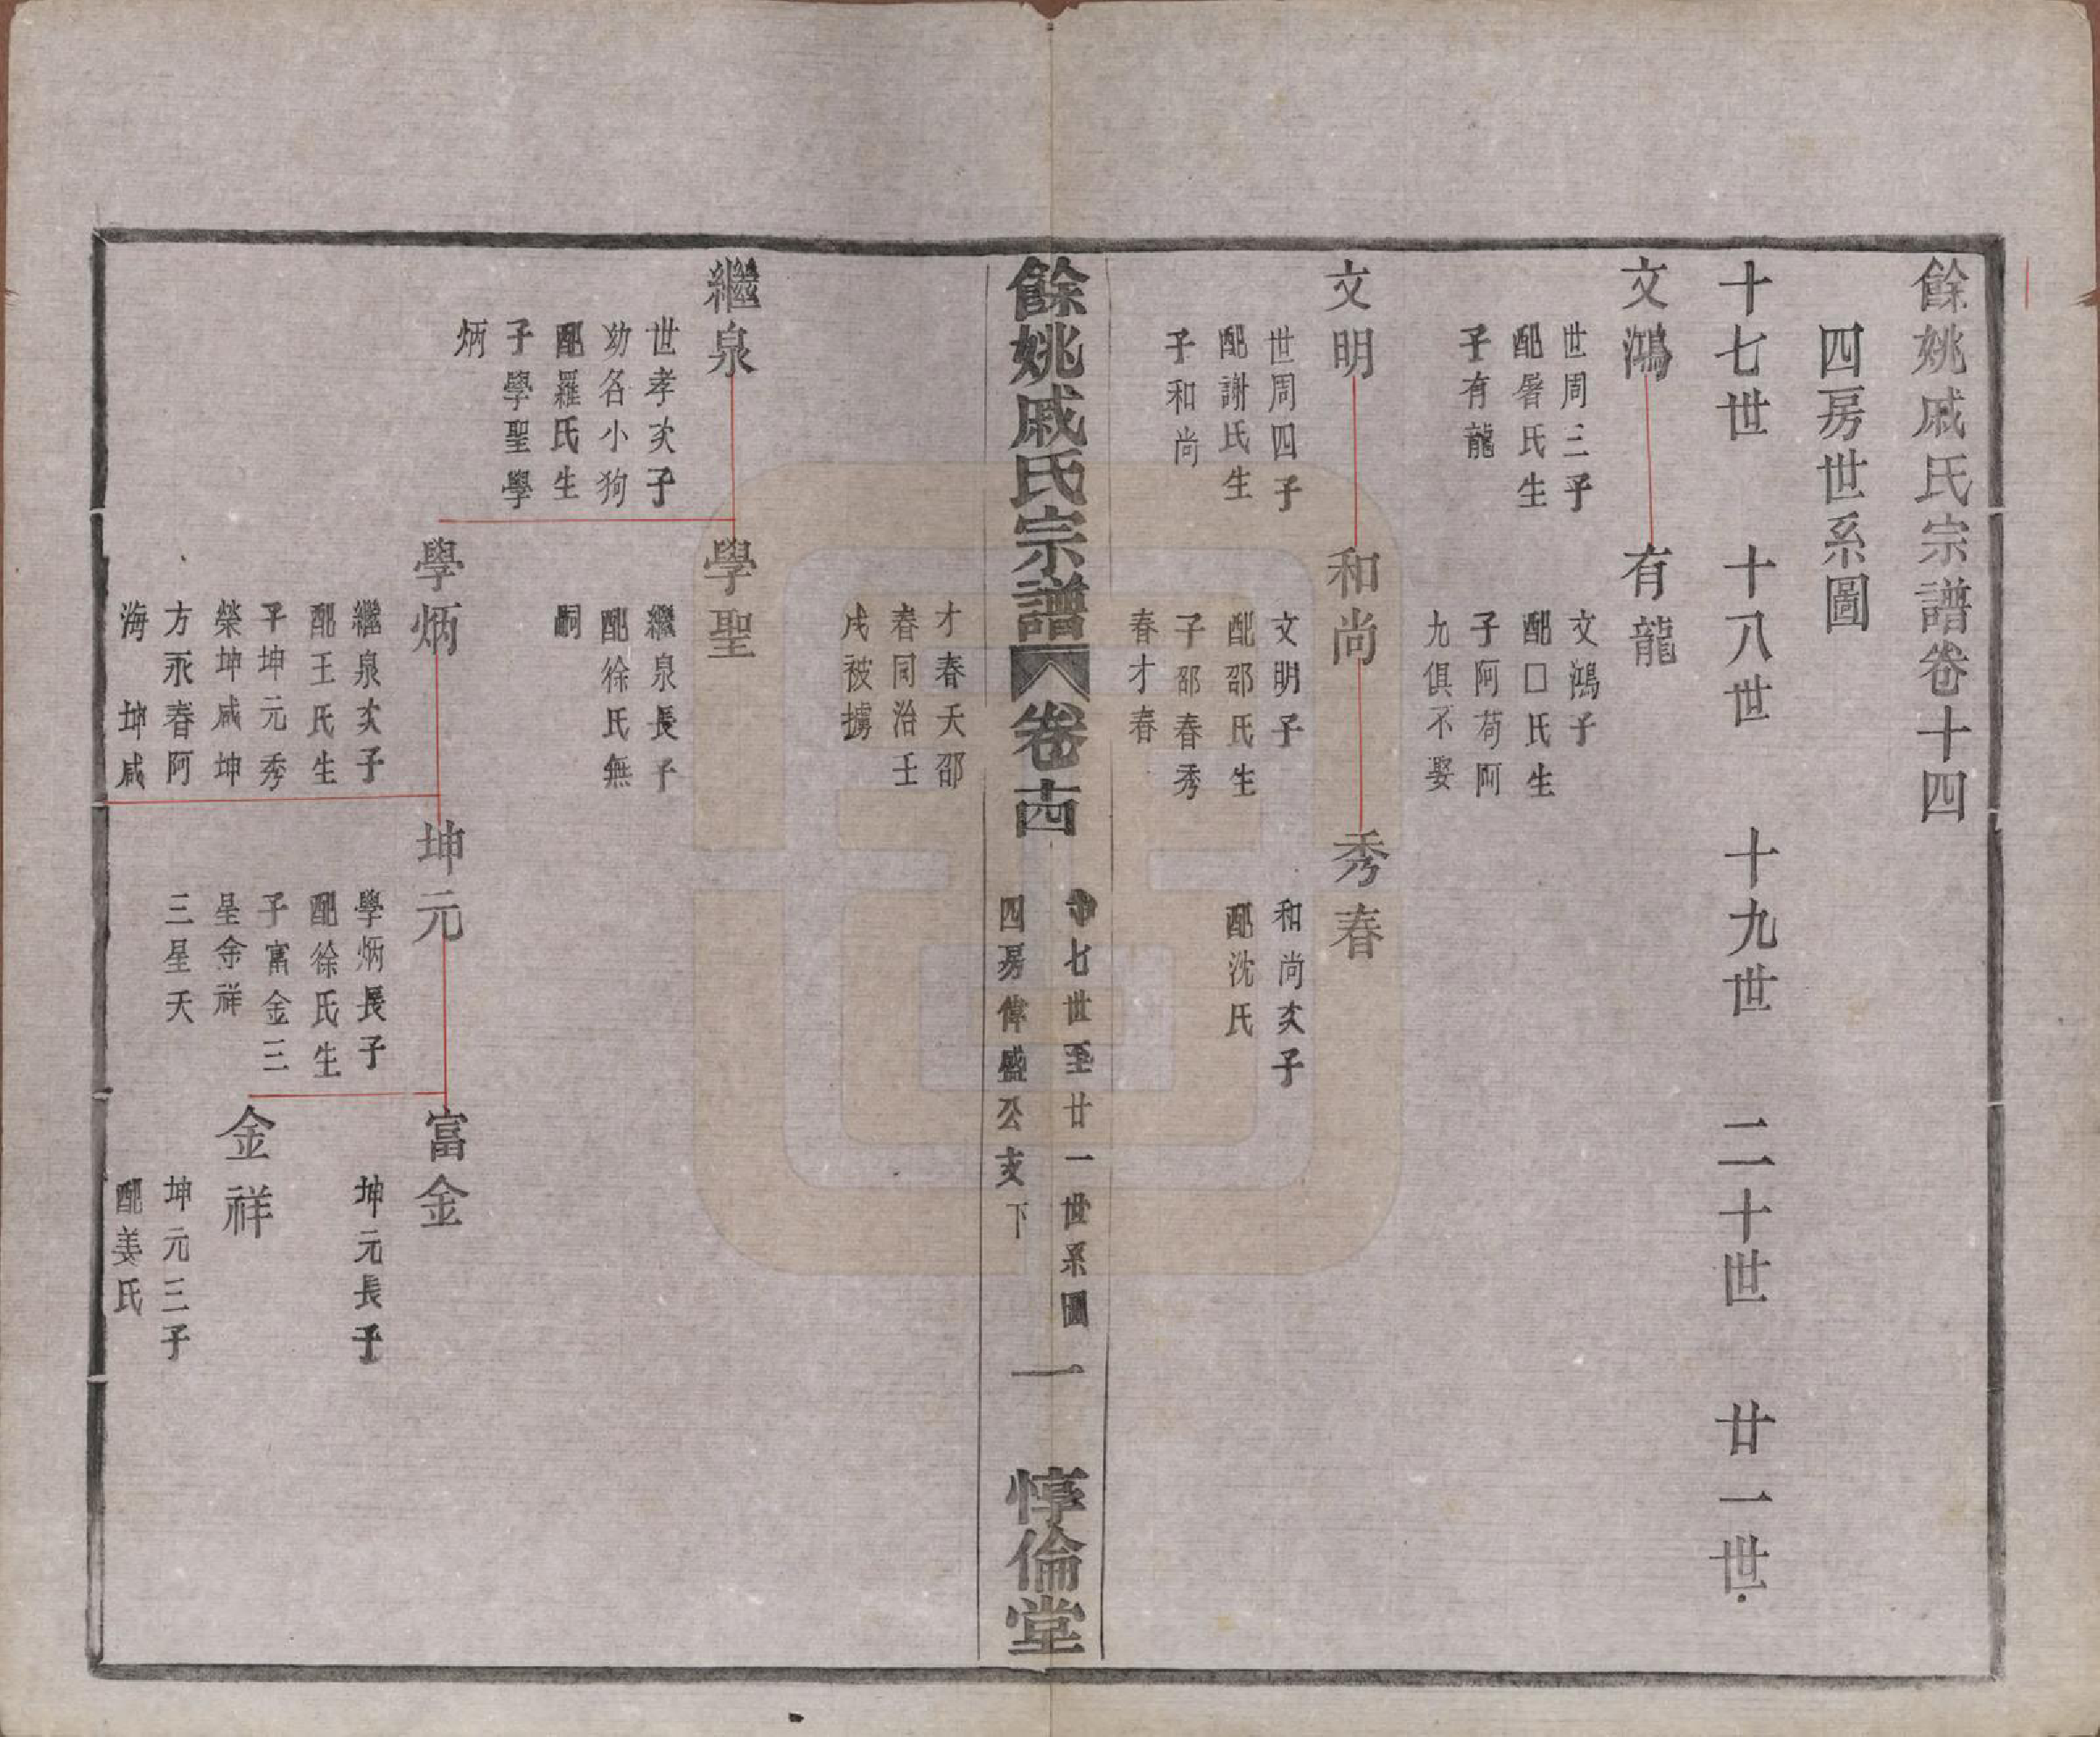 餘姚戚氏宗譜卷十四
四房世系圖
十七世　十八世　十九世　二十世　廿一世
文鴻
世周三子
配屠氏生
子有龍
有龍
文鴻子
配口氏生
子阿苟阿
九俱不娶
文明
世周四子
配謝氏生
子和尚
和尚
文明子
配邵氏生
子邵春秀
春才春
秀春
和尚次子
配沈氏
餘姚戚氏宗譜
卷十四
十七世至廿一世系圖
四房偉盛公支下
一
惇倫堂
才春夭邵
春同治壬
戌被擄
繼泉
世孝次子
幼名小狗
配羅氏生
子學聖學
炳
學聖
繼泉長子
配徐氏無
嗣
學炳
繼泉次子
配王氏生
子坤元秀
榮坤咸坤
方永春阿
海　坤咸
坤元
學炳長子
配徐氏生
子富金三
星金祥
三星夭
富金
坤元長子
金祥
坤元三子
配姜氏